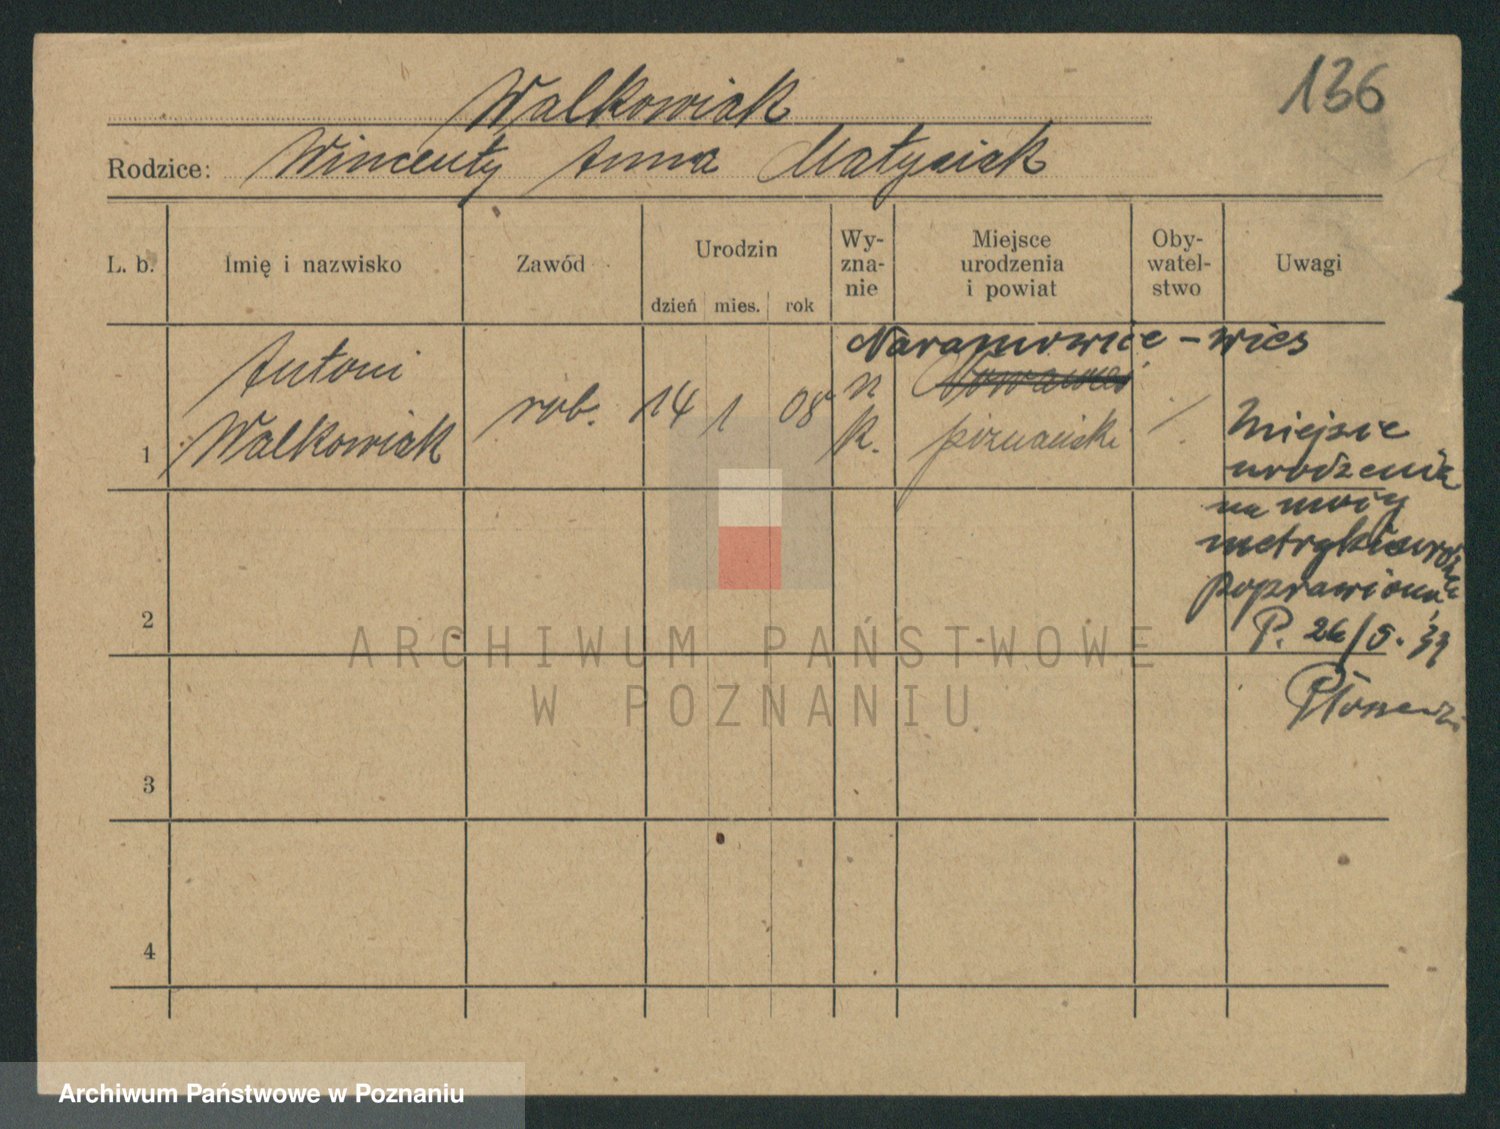 136
Walkowiak
Rodzice: Wincenty Anna Matysiak
L. b.
Imię i nazwisko
Zawód
Urodzin
dzień mies. rok
Wy-
zna-
nie
Miejsce
urodzenia
i powiat
Oby-
watel-
stwo
Uwagi
Naramowice - wieś
1
Antoni
Walkowiak
rob. 14 1 08
r.
k.
poznański
Miejsce
urodzenia
na mocy
metryki urodz.
poprawiono
P. 26/5. 33
2
3
4
ARCHIWUM PAŃSTWOWE
W POZNANIU
Archiwum Państwowe w Poznaniu